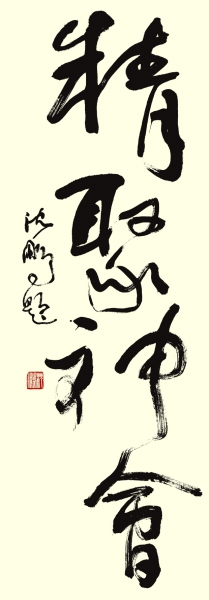 精聚神會
沈鵬題